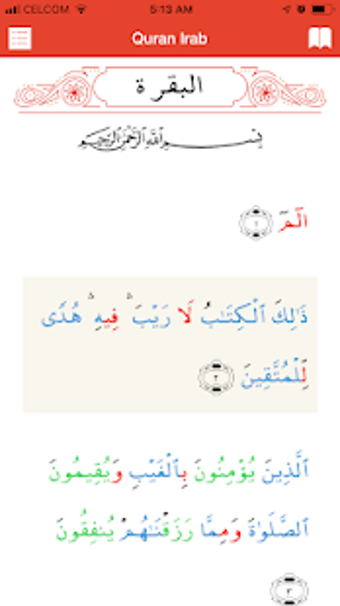 CELCOM 5:13 AM
Quran Irab
البقرة
بِسْمِ ٱللَّهِ ٱلرَّحْمَٰنِ ٱلرَّحِيمِ
الٓمٓ ١
ذَٰلِكَ ٱلْكِتَٰبُ لَا رَيْبَ ۛ فِيهِ ۛ هُدًى
لِّلْمُتَّقِينَ ٢
ٱلَّذِينَ يُؤْمِنُونَ بِٱلْغَيْبِ وَيُقِيمُونَ
ٱلصَّلَوٰةَ وَمِمَّا رَزَقْنَٰهُمْ يُنفِقُونَ
٣